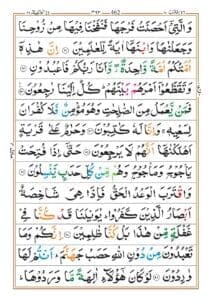 وَالَّتِيْۤ اَحْصَنَتْ فَرْجَهَا فَنَفَخْنَا فِيْهَا مِنْ رُّوْحِنَا
وَجَعَلْنٰهَا وَابْنَهَاۤ اٰيَةً لِّلْعٰلَمِيْنَ ۝ اِنَّ هٰذِهٖۤ
اُمَّتُكُمْ اُمَّةً وَّاحِدَةً ۖ وَّاَنَا رَبُّكُمْ فَاعْبُدُوْنِ ۝
وَتَقَطَّعُوْۤا اَمْرَهُمْ بَيْنَهُمْ ؕ كُلٌّ اِلَيْنَا رٰجِعُوْنَ ۝
فَمَنْ يَّعْمَلْ مِنَ الصّٰلِحٰتِ وَهُوَ مُؤْمِنٌ فَلَا كُفْرَانَ
لِسَعْيِهٖ ۚ وَاِنَّا لَهٗ كٰتِبُوْنَ ۝ وَحَرٰمٌ عَلٰى قَرْيَةٍ
اَهْلَكْنٰهَاۤ اَنَّهُمْ لَا يَرْجِعُوْنَ ۝ حَتّٰۤى اِذَا فُتِحَتْ
يَاْجُوْجُ وَمَاْجُوْجُ وَهُمْ مِّنْ كُلِّ حَدَبٍ يَّنْسِلُوْنَ ۝
وَاقْتَرَبَ الْوَعْدُ الْحَقُّ فَاِذَا هِيَ شَاخِصَةٌ
اَبْصَارُ الَّذِيْنَ كَفَرُوْا ؕ يٰوَيْلَنَا قَدْ كُنَّا فِيْ
غَفْلَةٍ مِّنْ هٰذَا بَلْ كُنَّا ظٰلِمِيْنَ ۝ اِنَّكُمْ وَمَا
تَعْبُدُوْنَ مِنْ دُوْنِ اللّٰهِ حَصَبُ جَهَنَّمَ ؕ اَنْتُمْ لَهَا
وٰرِدُوْنَ ۝ لَوْ كَانَ هٰۤؤُلَآءِ اٰلِهَةً مَّا وَرَدُوْهَا ؕ